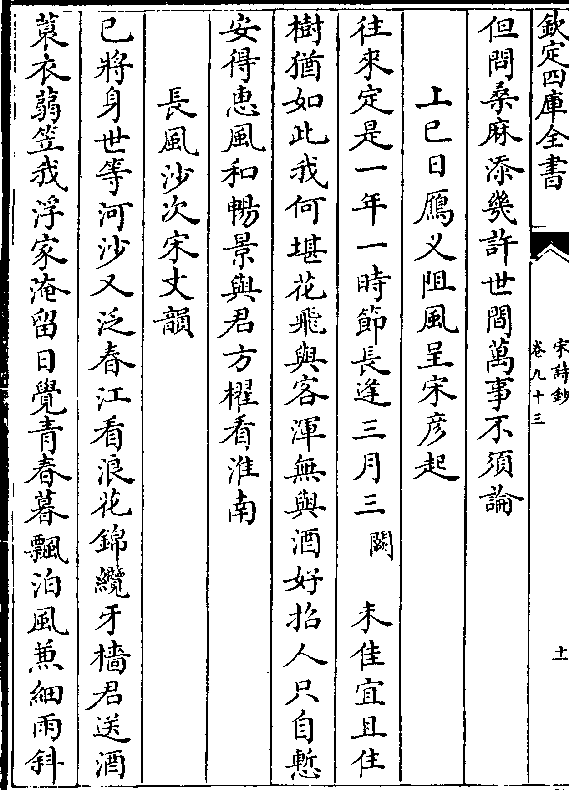 欽定四庫全書
宋詩鈔
卷九十三
十一
但問桑麻添幾許世間萬事不須論
上巳日鴈义阻風呈宋彦起
往來定是一年一時節長逢三月三闕 未佳宜且住
樹猶如此我何堪花飛與客渾無與酒好招人只自慙
安得惠風和暢景與君方櫂看淮南
長風沙次宋丈韻
已將身世等河沙又泛春江看浪花錦纜牙檣君送酒
蓑衣蒻笠我浮家淹留日覺青春暮飄泊風兼細雨斜